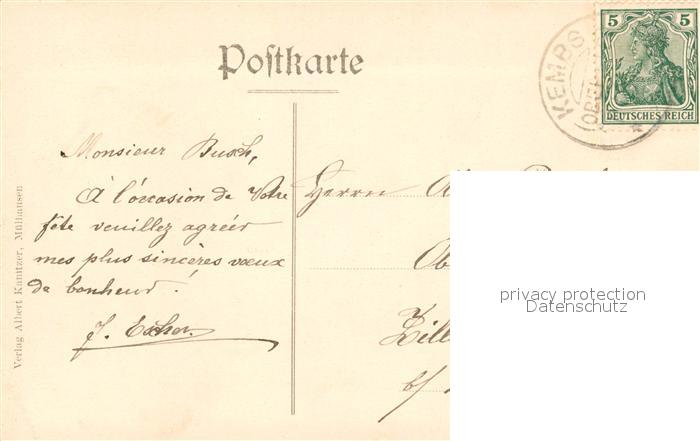 Postkarte
5 5
DEUTSCHES REICH
KEMBS
Monsieur Busch,
À l'occasion de Votre
fête veuillez agréer
mes plus sincères vœux
de bonheur!
Herrn
Verlag Albert Kanitzer, Mülhausen
privacy protection
Datenschutz